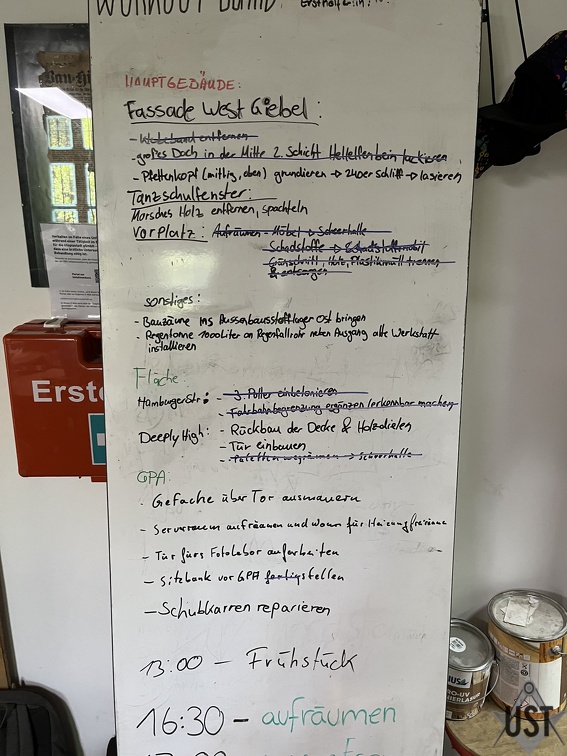 WORKOUT
HAUPTGEBÄUDE:
Fassade West Giebel:
- Webeband entfernen
- großes Dach in der Mitte 2. Schicht Hellelfenbein lackieren
- Pfettenkopf (mittig, oben) grundieren → 240er Schliff → lasieren
Tanzschulfenster:
Morsches Holz entfernen, spachteln
Vorplatz: Aufräumen - Möbel → Scheerhalle
Schadstoffe → Schadstoffmobil
Grünschnitt, Holz, Plastikmüll trennen
& entsorgen
sonstiges:
- Bauzäune ins Aussenbaustofflager Ost bringen
- Regentonne 1000 Liter an Regenfallrohr neben Ausgang alte Werkstatt
installieren
Fläche:
Hamburgerstr.: - 3. Poller einbetonieren
- Fahrbahnbegrenzung ergänzen / erkennbar machen
Deeply High: - Rückbau der Decke & Holzdielen
- Tür einbauen
- Paletten wegräumen → Scheerhalle
GPA:
- Gefache über Tor ausmauern
- Serverraum aufräumen und
- Tür fürs Fotolabor aufarbeiten
- Sitzbank vor GPA fertigstellen
- Schubkarren reparieren
13:00 - Frühstück
16:30 - aufräumen
Erste
UST